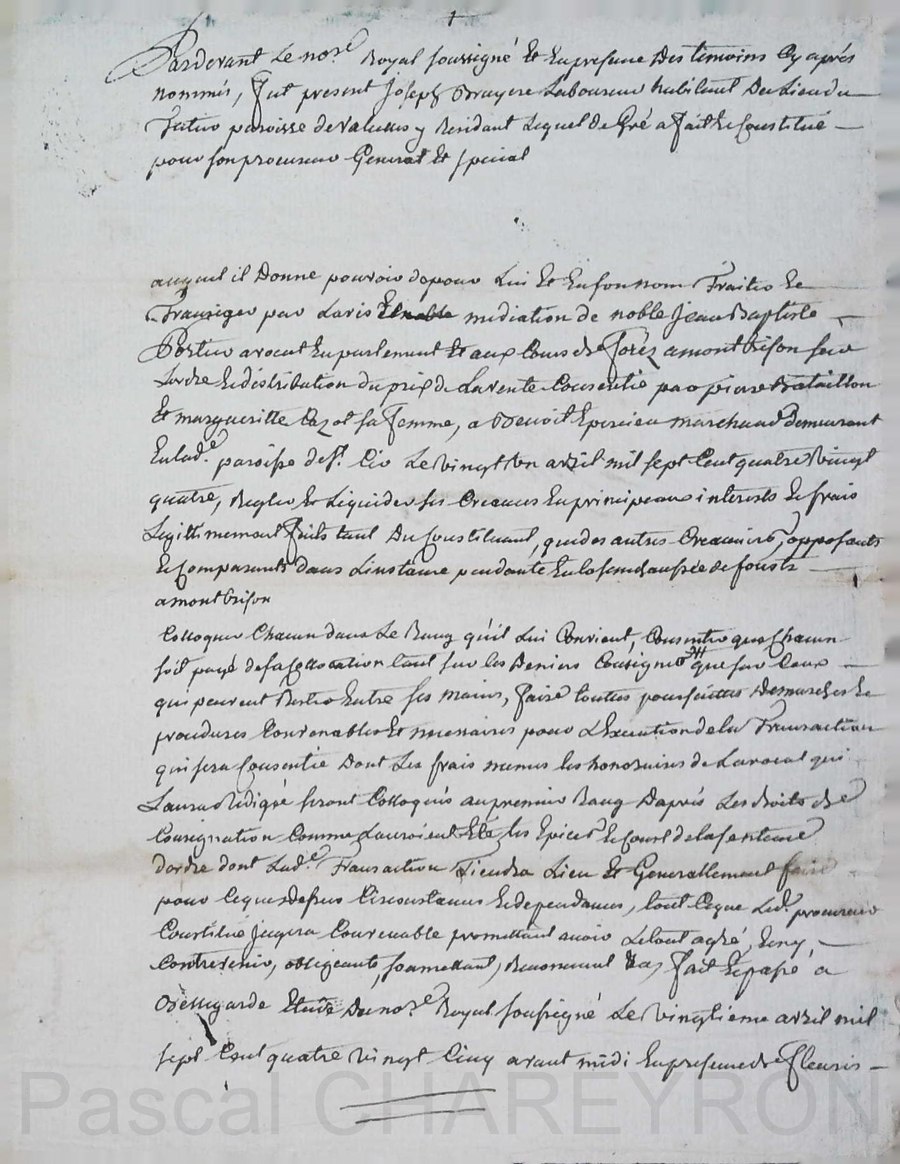 Pardevant Le nore. Royal soussigné Et En presence Des temoins Cy après
nommés, fut present Joseph Bruyere Laboureur habitant Du Lieu du
paroisse de valeilles y Residant Lequel de Gré a fait Et Constitué
pour son procureur General Et special
auquel il Donne pouvoir de pour Lui Et En son nom Traiter Et
Transiger par Lavis Et mediation de noble Jean Baptiste
Portier avocat En parlement Et aux Cours de forez a montbrison sur
Lordre Et distribution du prix de La vente Consentie par pierre Bataillon
Et margueritte sa femme, a Benoit Epercieu marchand demeurant
En lad.e paroisse de St. Cir Le vingt un avril mil sept Cent quatre vingt
quatre, Regler Et Liquider Les Creances En principeaux interests Et frais
Legittimement faits tant Du Constituant, que des autres Creanciers, opposants
Et Comparants dans Linstance pendante En la senechaussée de forests
a montbrison
Colloquer Chacun dans Le Rang qu'il Lui Convient, Consentir que Chacun
soit payé de sa Collocation tant sur les Deniers Consignés que sur Ceux
qui peuvent Rester Entre ses mains, faire touttes poursuittes Demarches Et
procedures Convenables Et necessaires pour LExecution de la Transaction
qui sera Consentie Dont Les frais memes les honoraires de Lavocat qui
Laura Redigé seront Colloqués au premier Rang Daprés Les droits de
Consignation Comme Lauroient Eté les Epices Et Cout de la sentence
dordre dont Lad.e Transaction Tiendra Lieu Et Generallement faire
pour Ce que dessus Circonstances Et dependances, tout Ce que Led. procureur
Constitué jugera Convenable promettant avoir Le tout agré, Et ny
Contrevenir, obligeants, soumettant, Renoncant fait Et passé à
Bellegarde Etude Du nore. Royal soussigné Le vingtieme avril mil
sept Cent quatre vingt Cinq avant midi En presence de fleuris
Pascal CHAREYRON